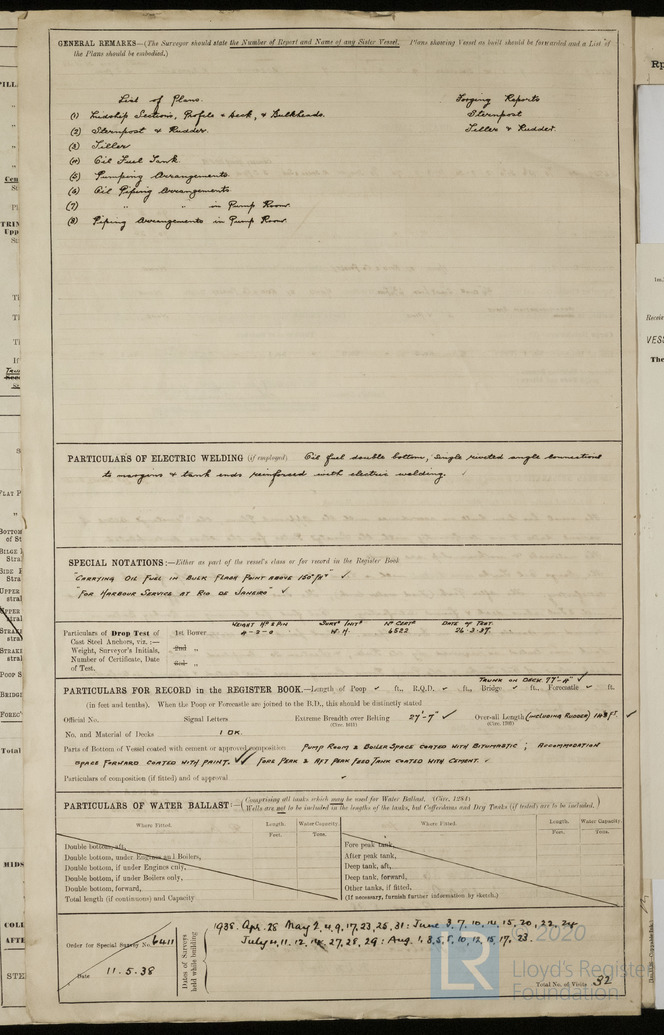 GENERAL REMARKS—(The Surveyor should state the Number of Report and Name of any Sister Vessel. Plans showing Vessel as built should be forwarded and a List of
the Plans should be embodied.)
List of Plans.
(1) Midship Sections, Profile & deck, & Bulkheads.
(2) Sternpost & Rudder.
(3) Tiller
(4) Oil Fuel Tank
(5) Pumping Arrangements
(6) Oil Piping Arrangements
(7) " " in Pump Room.
(8) Piping Arrangements in Pump Room.
Forging Reports
Sternpost
Tiller & Rudder.
PARTICULARS OF ELECTRIC WELDING (if employed) Oil fuel double bottom, single riveted angle connections
to margins & tank ends reinforced with electric welding.
SPECIAL NOTATIONS:—Either as part of the vessel's class or for record in the Register Book
"CARRYING OIL FUEL IN BULK FLASH POINT ABOVE 150°FH" ✓
"FOR HARBOUR SERVICE AT RIO DE JANEIRO" ✓
Particulars of Drop Test of
Cast Steel Anchors, viz.:—
Weight, Surveyor's Initials,
Number of Certificate, Date
of Test.
WEIGHT HD & PIN SURS INITS NO CERTE DATE OF TEST.
1st Bower 4-2-0 W.H. 6522 26.3.37.
2nd "
3rd "
TRUNK ON DECK 77'-4" ✓
PARTICULARS FOR RECORD in the REGISTER BOOK.—Length of Poop ✓ ft., R.Q.D. ✓ ft., Bridge ✓ ft., Forecastle ✓ ft.
(in feet and tenths). When the Poop or Forecastle are joined to the B.D., this should be distinctly stated
Official No. Signal Letters Extreme Breadth over Belting 27'-7" ✓ Over-all Length (INCLUDING RUDDER) FT. ✓
(Circ. 1611) (Circ. 1703)
No. and Material of Decks 1 DK.
Parts of Bottom of Vessel coated with cement or approved composition PUMP ROOM & BOILER SPACE COATED WITH BITUMASTIC ; ACCOMMODATION
SPACE FORWARD COATED WITH PAINT. ✓✓ FORE PEAK & AFT PEAK FEED TANK COATED WITH CEMENT. ✓
Particulars of composition (if fitted) and of approval ✓
PARTICULARS OF WATER BALLAST:—(Comprising all tanks which may be used for Water Ballast. (Circ. 1284)
Wells are not to be included in the lengths of the tanks, but Cofferdams and Dry Tanks (if tested) are to be included.)
Where Fitted. Length. Water Capacity. Where Fitted. Length. Water Capacity.
Feet. Tons. Feet. Tons.
Double bottom, aft,
Double bottom, under Engines and Boilers,
Double bottom, if under Engines only,
Double bottom, if under Boilers only,
Double bottom, forward,
Total length (if continuous) and Capacity
Fore peak tank,
After peak tank,
Deep tank, aft,
Deep tank, forward,
Other tanks, if fitted,
(If necessary, furnish further information by sketch.)
Order for Special Survey No. 6411
Date 11.5.38
Dates of Surveys held while building
1938. Apr. 28 May 2, 4, 9, 17, 23, 25, 31: June 3, 7, 10, 14, 15, 20, 22, 24
July 4, 11, 12, 14, 27, 28, 29: Aug. 1, 3, 5, 8, 10, 12, 15, 17, 23.
Total No. of Visits 32
© 2020
LR
Lloyd's Register
Foundation